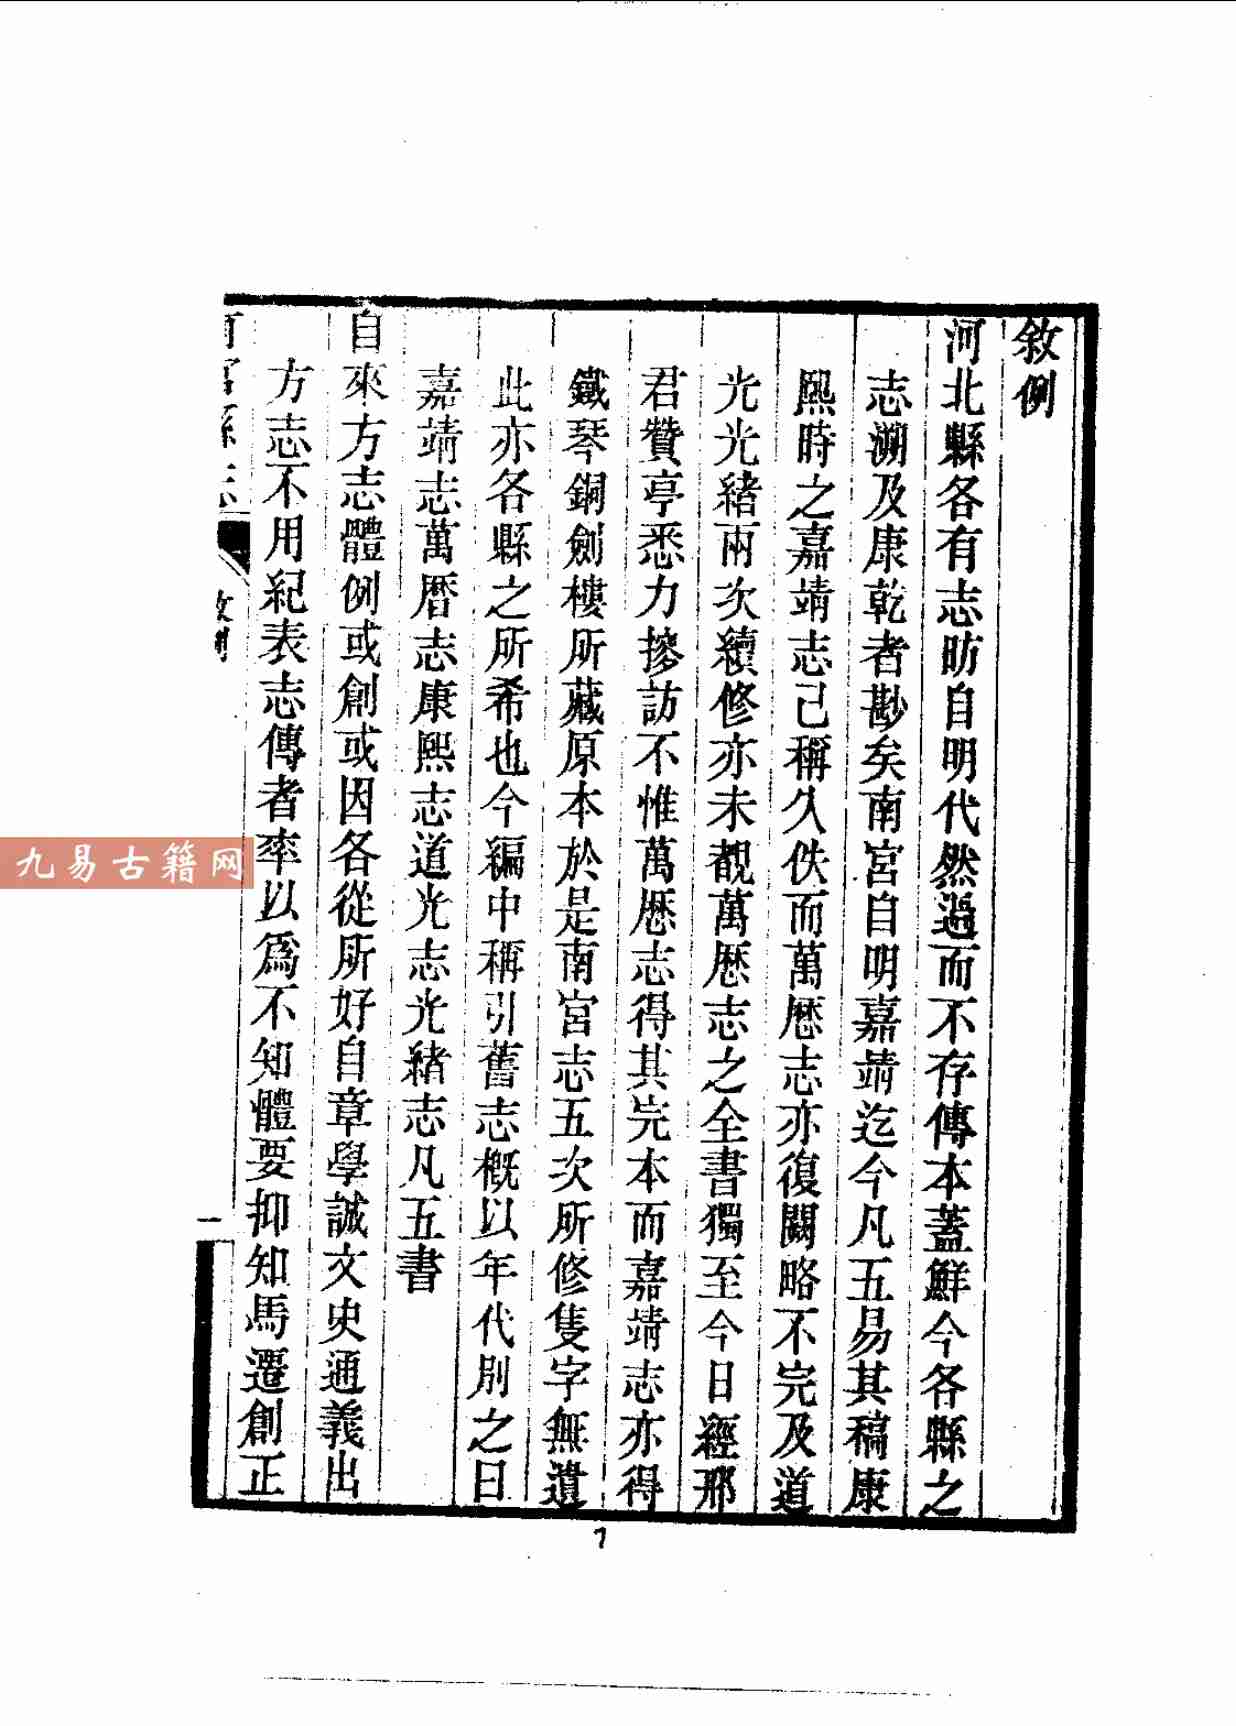 敘例
河北縣各有志昉自明代然過而不存傳本蓋鮮今各縣之
志溯及康乾者尠矣南宮自明嘉靖迄今凡五易其稿康
熙時之嘉靖志已稱久佚而萬厯志亦復闕略不完及道
光光緒兩次續修亦未覩萬厯志之全書獨至今日經邢
君贊亭悉力搜訪不惟萬厯志得其完本而嘉靖志亦得
鐵琴銅劍樓所藏原本於是南宮志五次所修隻字無遺
此亦各縣之所希也今編中稱引舊志概以年代別之曰
嘉靖志萬曆志康熙志道光志光緒志凡五書
自來方志體例或創或因各從所好自章學誠文史通義出
方志不用紀表志傳者率以爲不知體要抑知馬遷創正
南宮縣志
敘例
一
7
九易古籍网